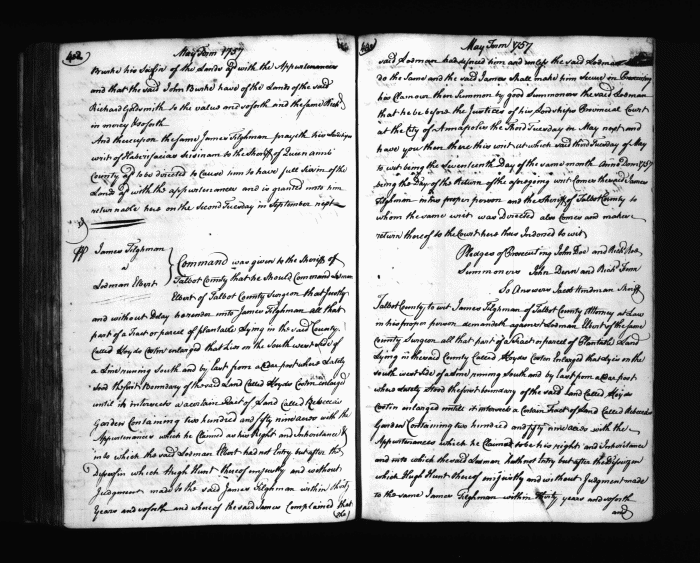 402
May Term 1757
Burke his Seisin of the Lands af.d with the Appurtenances
and that the said John Burke have of the Lands of the said
Richard Goldsmith to the value and soforth and the same Rich.d
in mercy &c soforth
And thereupon the same James Tilghman prayeth his Lordships
writ of Habere facias Seisinam to the Sheriff of Queen anns
County af.d to be directed to Cause him to have full Seisin of the
Lands af.d with the appurtenances and is granted unto him
returnable here on the Second Tuesday in September next
James Tilghman
a
Lodman Elbert
Command was given to the Sheriff of
Talbot County that he Should Command Lodman
Elbert of Talbot County Surgeon that Justly
and without Delay he render unto James Tilghman all that
part of a Tract or parcel of plantable Lying in the said County
Called Loyds Costin enlarged that lies on the South west side of
a Line running South and by East from a Cedar post where Lately
Stood the first Boundary of the said Land Called Loyds Costin enlarged
until it intersects a certain Tract of Land Called Rebeccas
Garden Containing two hundred and fifty nine acres with the
Appurtenances which he Claimed as his Right and Inheritance &
into which the said Lodman Elbert had not Entry but after the
disseisin which Hugh Hunt thereof unjustly and without
Judgment made to the said James Tilghman within thirty
Years and soforth and whereof the said James Complained that
the
May Term 1757
said Lodman had deforced him and unless the said Lodman
do the Same and the said James Shall make him Secure in Prosecuting
his Clamour then Summon by good Summoners the said Lodman
that he be before the Justices of his Lordships Provincial Court
at the City of Annapolis the Third Tuesday in May next and
have you then there this writ at which said third Tuesday of May
to wit being the Seventeenth Day of the same month Anno Dom 1757
being the Day of the Return of the aforegoing writ Comes the said James
Tilghman in his proper person and the Sheriff of Talbot County to
whom the same writ was directed also Comes and makes
return thereof to the Court here thus Indorsed to wit
Pledges of Prosecuting John Doe and Rich.d Roe
Summoners John Denn and Rich.d Fenn
So Answers Jacob Hindman Sheriff
Talbot County to wit James Tilghman of Talbot County Attorney at Law
in his proper person demandeth against Lodman Elbert of the same
County Surgeon all that part of a Tract or parcel of Plantable Land
Lying in the said County Called Loyds Costin Enlarged that lies on the
South west side of a Line running South and by East from a Cedar post
where Lately Stood the first boundary of the said Land Called Loyds
Costin enlarged until it intersects a Certain Tract of Land Called Rebeccas
Garden Containing two hundred and fifty nine acres with the
Appurtenances which he Claims to be his right and Inheritance
and into which the said Lodman hath not Entry but after the Disseisin
which Hugh Hunt thereof unjustly and without Judgment made
to the same James Tilghman within thirty years and soforth
and